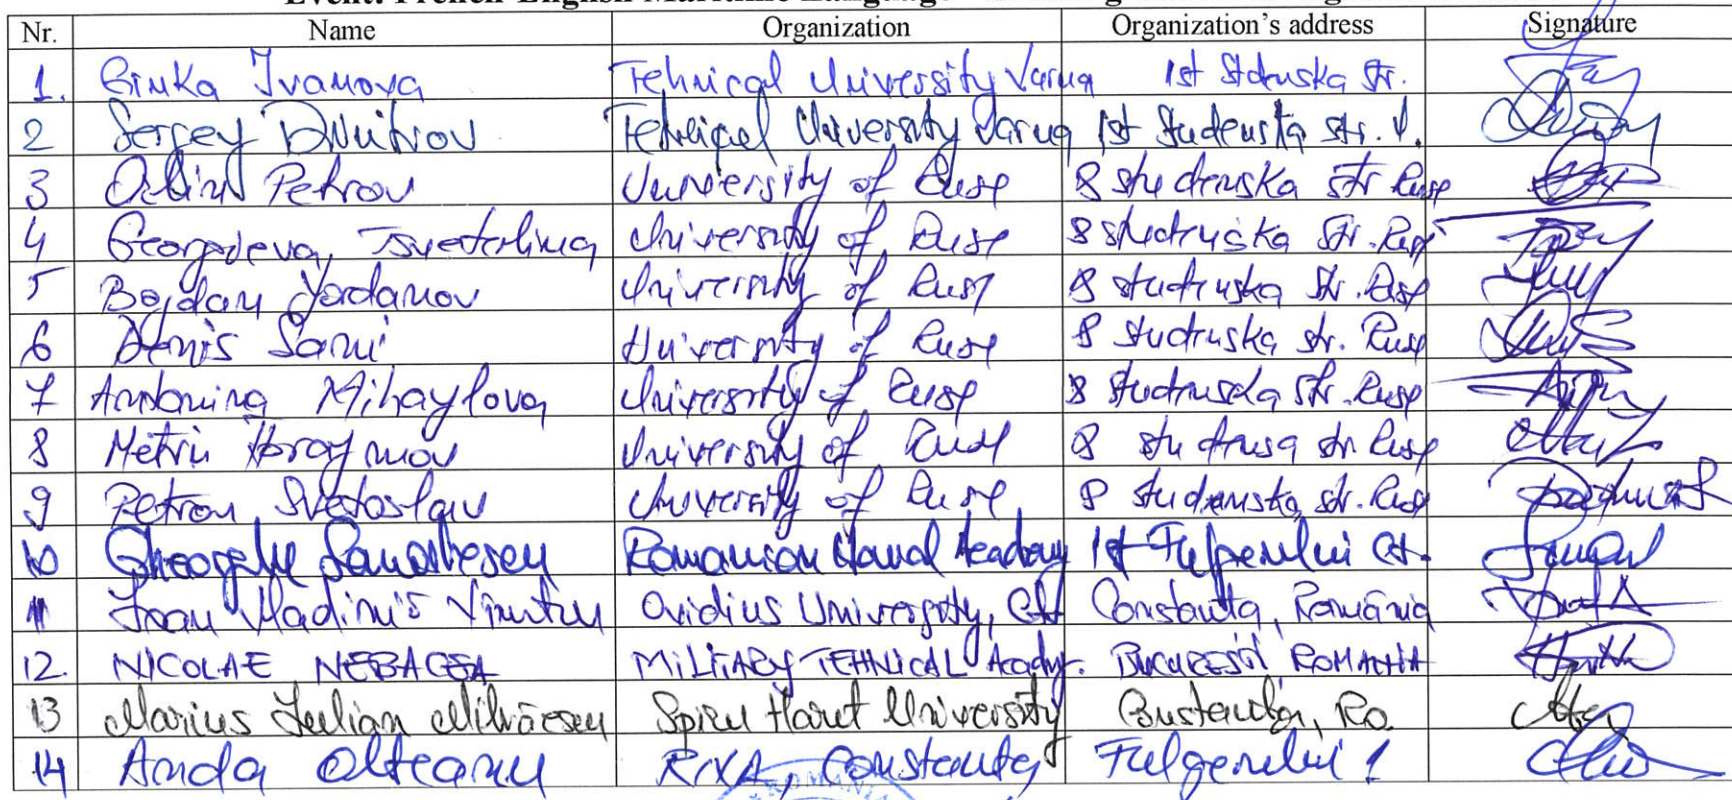 Nr. Name Organization Organization's address Signature
1. Ginka Ivanova Tehnical University Varna 1st Stdenska Str.
2 Sergey Dimitrov Tehnical University Varna 1st Studenska str. V.
3 Petrov University of Ruse 8 studenska str Ruse
4 Georgdieva, Tsvetelina University of Ruse 8 studenska Str. Ruse
5 Bogdan Yordanov University of Ruse 8 studenska Str. Ruse
6 Denis Sami University of Ruse 8 studenska str. Ruse
7 Antonina Mihaylova University of Ruse 8 studenska Str. Ruse
8 Metin University of Ruse 8 str. Ruse
9 Petrov Svetoslav University of Ruse 8 studenska str. Ruse
10 Romanian Naval Academy 1st Fulgerului Ct.
11 Ovidius University, Ct Constanta, România
12. NICOLAE MILITARY TEHNICAL Academy. ROMANIA
13 Marius Iulian Mihăescu Spiru Haret University Ro
14 Anda Olteanu Constanta Fulgerului 1